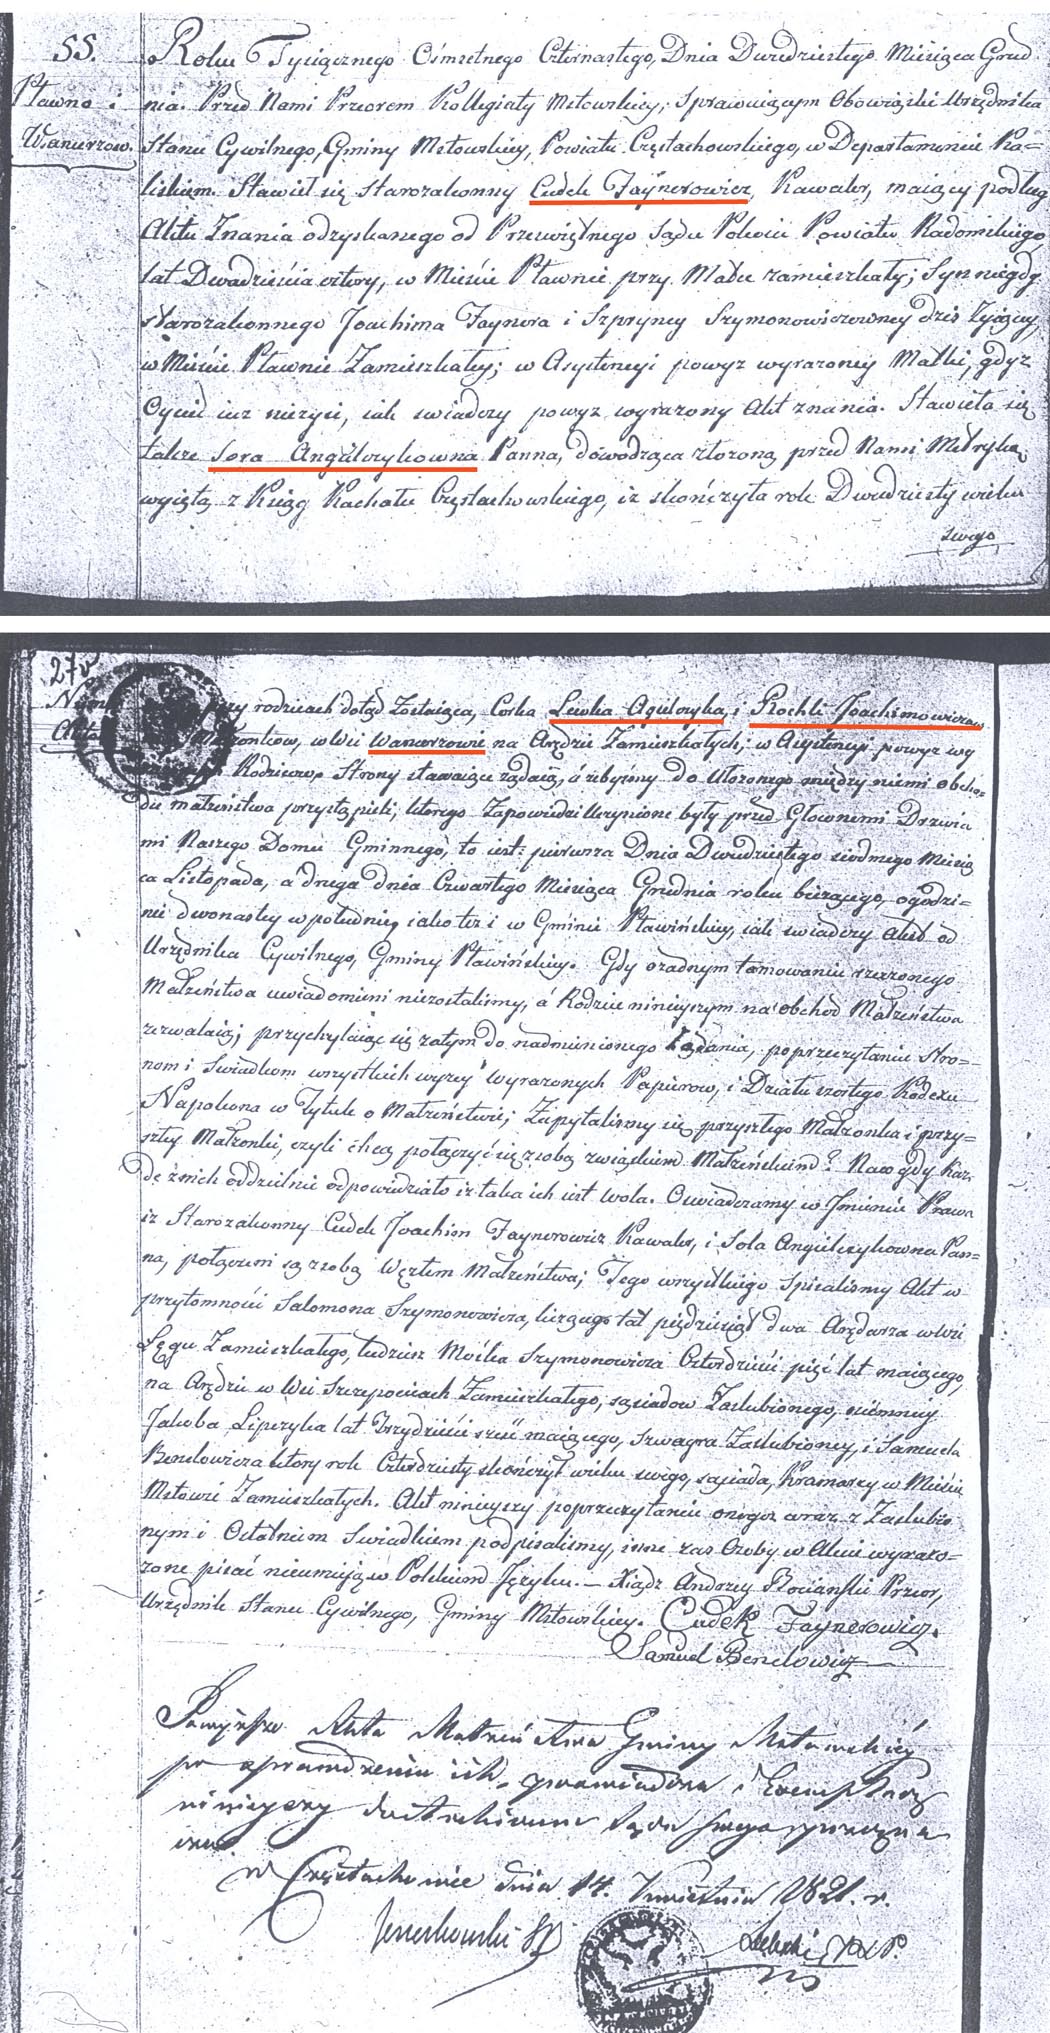 55.
Pławno i
Wancerzow.
Roku Tysiącznego Ośmsetnego Czternastego, Dnia Dwudziestego Miesiąca Grud-
nia. Przed Nami Przeorem Kollegiaty Mstowskiey, sprawuiącym Obowiązki Urzędnika
Stanu Cywilnego, Gminy Mstowskiey, Powiatu Częstochowskiego, w Departamencie Ka=
liskim. Stawił się starozakonny Cudek Faynerowicz, Kawaler, maiący podług
Aktu Znania odzyskanego od Przeświętnego Sądu Pokoiu Powiatu Radomskiego
lat Dwadzieścia cztery, w Mieście Pławnie przy Matce zamieszkały; Syn niegdy
starozakonnego Joachima Faynera i Szpryncy Szymonowiczowney dziś żyiącey,
w Mieście Pławnie Zamieszkałey; w Asystencyi powyż wyrażoney Matki, gdyż
Oyciec iuż nieżyie, iak świadczy powyż wyrażony Akt znania. Stawiła się
także Sora Angielczykowna Panna, dowodząca złożoną przed Nami Metryką
wyiętą z Ksiąg Kachału Częstochowskiego, iż skończyła rok Dwudziesty wieku
swego
27v
przy rodzicach dotąd Zostaiąca, Corka Lewka Agielczyka, i Rochli Joachimowiczow
Małżonkow, w Wsi Wancerzowie na Arędzie Zamieszkałych; w Asystencyi powyż wy
Rodzicow. Strony stawaiące żądaią, ażebyśmy do ułożonego między niemi obcho-
du małżeństwa przystąpili, ktorego Zapowiedzi uczynione były przed Głownemi Drzwia
mi Naszego Domu Gminnego, to iest: pierwsza Dnia Dwudziestego siodmego Miesią
ca Listopada, a druga dnia Czwartego Miesiąca Grudnia roku bieżącego, o godzi=
nie dwonastey w południe, iako też i w Gminie Pławińskiey, iak świadczy Akt od
Urzędnika Cywilnego, Gminy Pławińskiey. Gdy o żadnym tamowaniu rzeczonego
Małżeństwa uwiadomieni niezostaliśmy, a Rodzice ninieyszym na obchod Małżeństwa
zezwalaią; przychylaiąc się zatym do nadmienionego Żądania, po przeczytaniu Stro=
nom i Swiadkom wszystkich wyżey wyrażonych Papierow, i Działu szostego Kodexu
Napoleona w Tytule o Małżeństwie; Zapytaliśmy się przyszłego Małżonka i przy=
szłey Małżonki, czyli chcą połączyć się z sobą związkiem Małżeńskim? Na co gdy każ-
de z nich oddzielnie odpowiedziało iż taka ich iest wola. Oswiadczamy w Jmieniu Prawa
iż Starozakonny Cudek Joachim Faynerowicz Kawaler, i Sola Angielczykowna Pan=
na, połączeni są z sobą Węzłem Małżeństwa; Tego wszystkiego spisaliśmy Akt w
przytomności Salomona Szymonowicza, liczącego lat pięćdziesiąt dwa Arędarza w Wsi
Łęgu Zamieszkałego, tudzież Mośka Szymonowicza Czterdzieści pięć lat maiącego,
na Arędzie w Wsi Szczepocicach Zamieszkałego, sąsiadow Zaślubionego, niemniey
Jakoba Lipczyka lat Trzydzieści sześć maiącego, szwagra Zaślubioney, i Samuela
Bendowicza ktory rok Czterdziesty skończył wieku swego, sąsiada, Kramarzy w Mieście
Mstowie Zamieszkałych. Akt ninieyszy po przeczytaniu onegoż wraz z Zaślubio
nym i Ostatnim Swiadkiem podpisaliśmy, inne zaś Osoby w Akcie wyrażo=
zone pisać nieumieią w Polskim Języku. — Xiądz Andrzey Rociański Przeor,
Urzędnik Stanu Cywilnego, Gminy Mstowskiey. Cudek Faynerowicz.
Samuel Bendowicz
Powyższe Akta Małżeństwa Gminy Mstowskiéy
po sprawdzeniu ich, poswiadcza i Exemplarz
ninieyszy do Archiwum Sądu
w Częstochowie dnia 14. Kwietnia 1821. r.